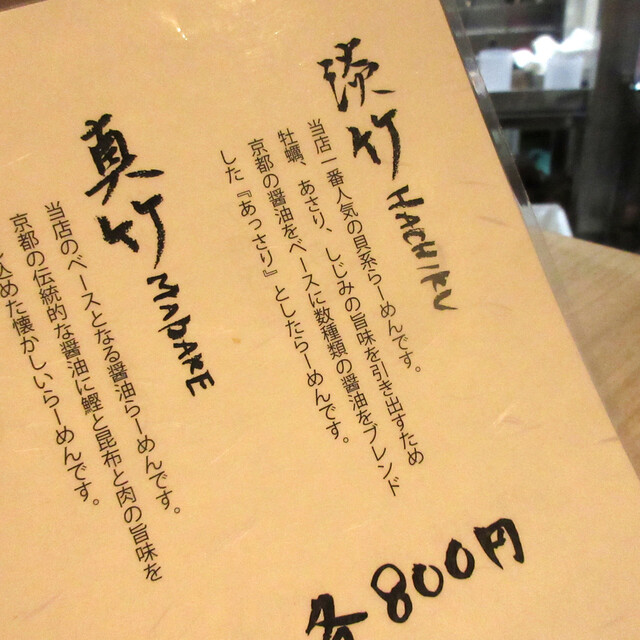 淡竹 HACHIKU
当店一番人気の貝系らーめんです。
牡蠣、あさり、しじみの旨味を引き出すため
京都の醤油をベースに数種類の醤油をブレンド
した『あっさり』としたらーめんです。
真竹 MADAKE
当店のベースとなる醤油らーめんです。
京都の伝統的な醤油に鰹と昆布と肉の旨味を
込めた懐かしいらーめんです。
各800円